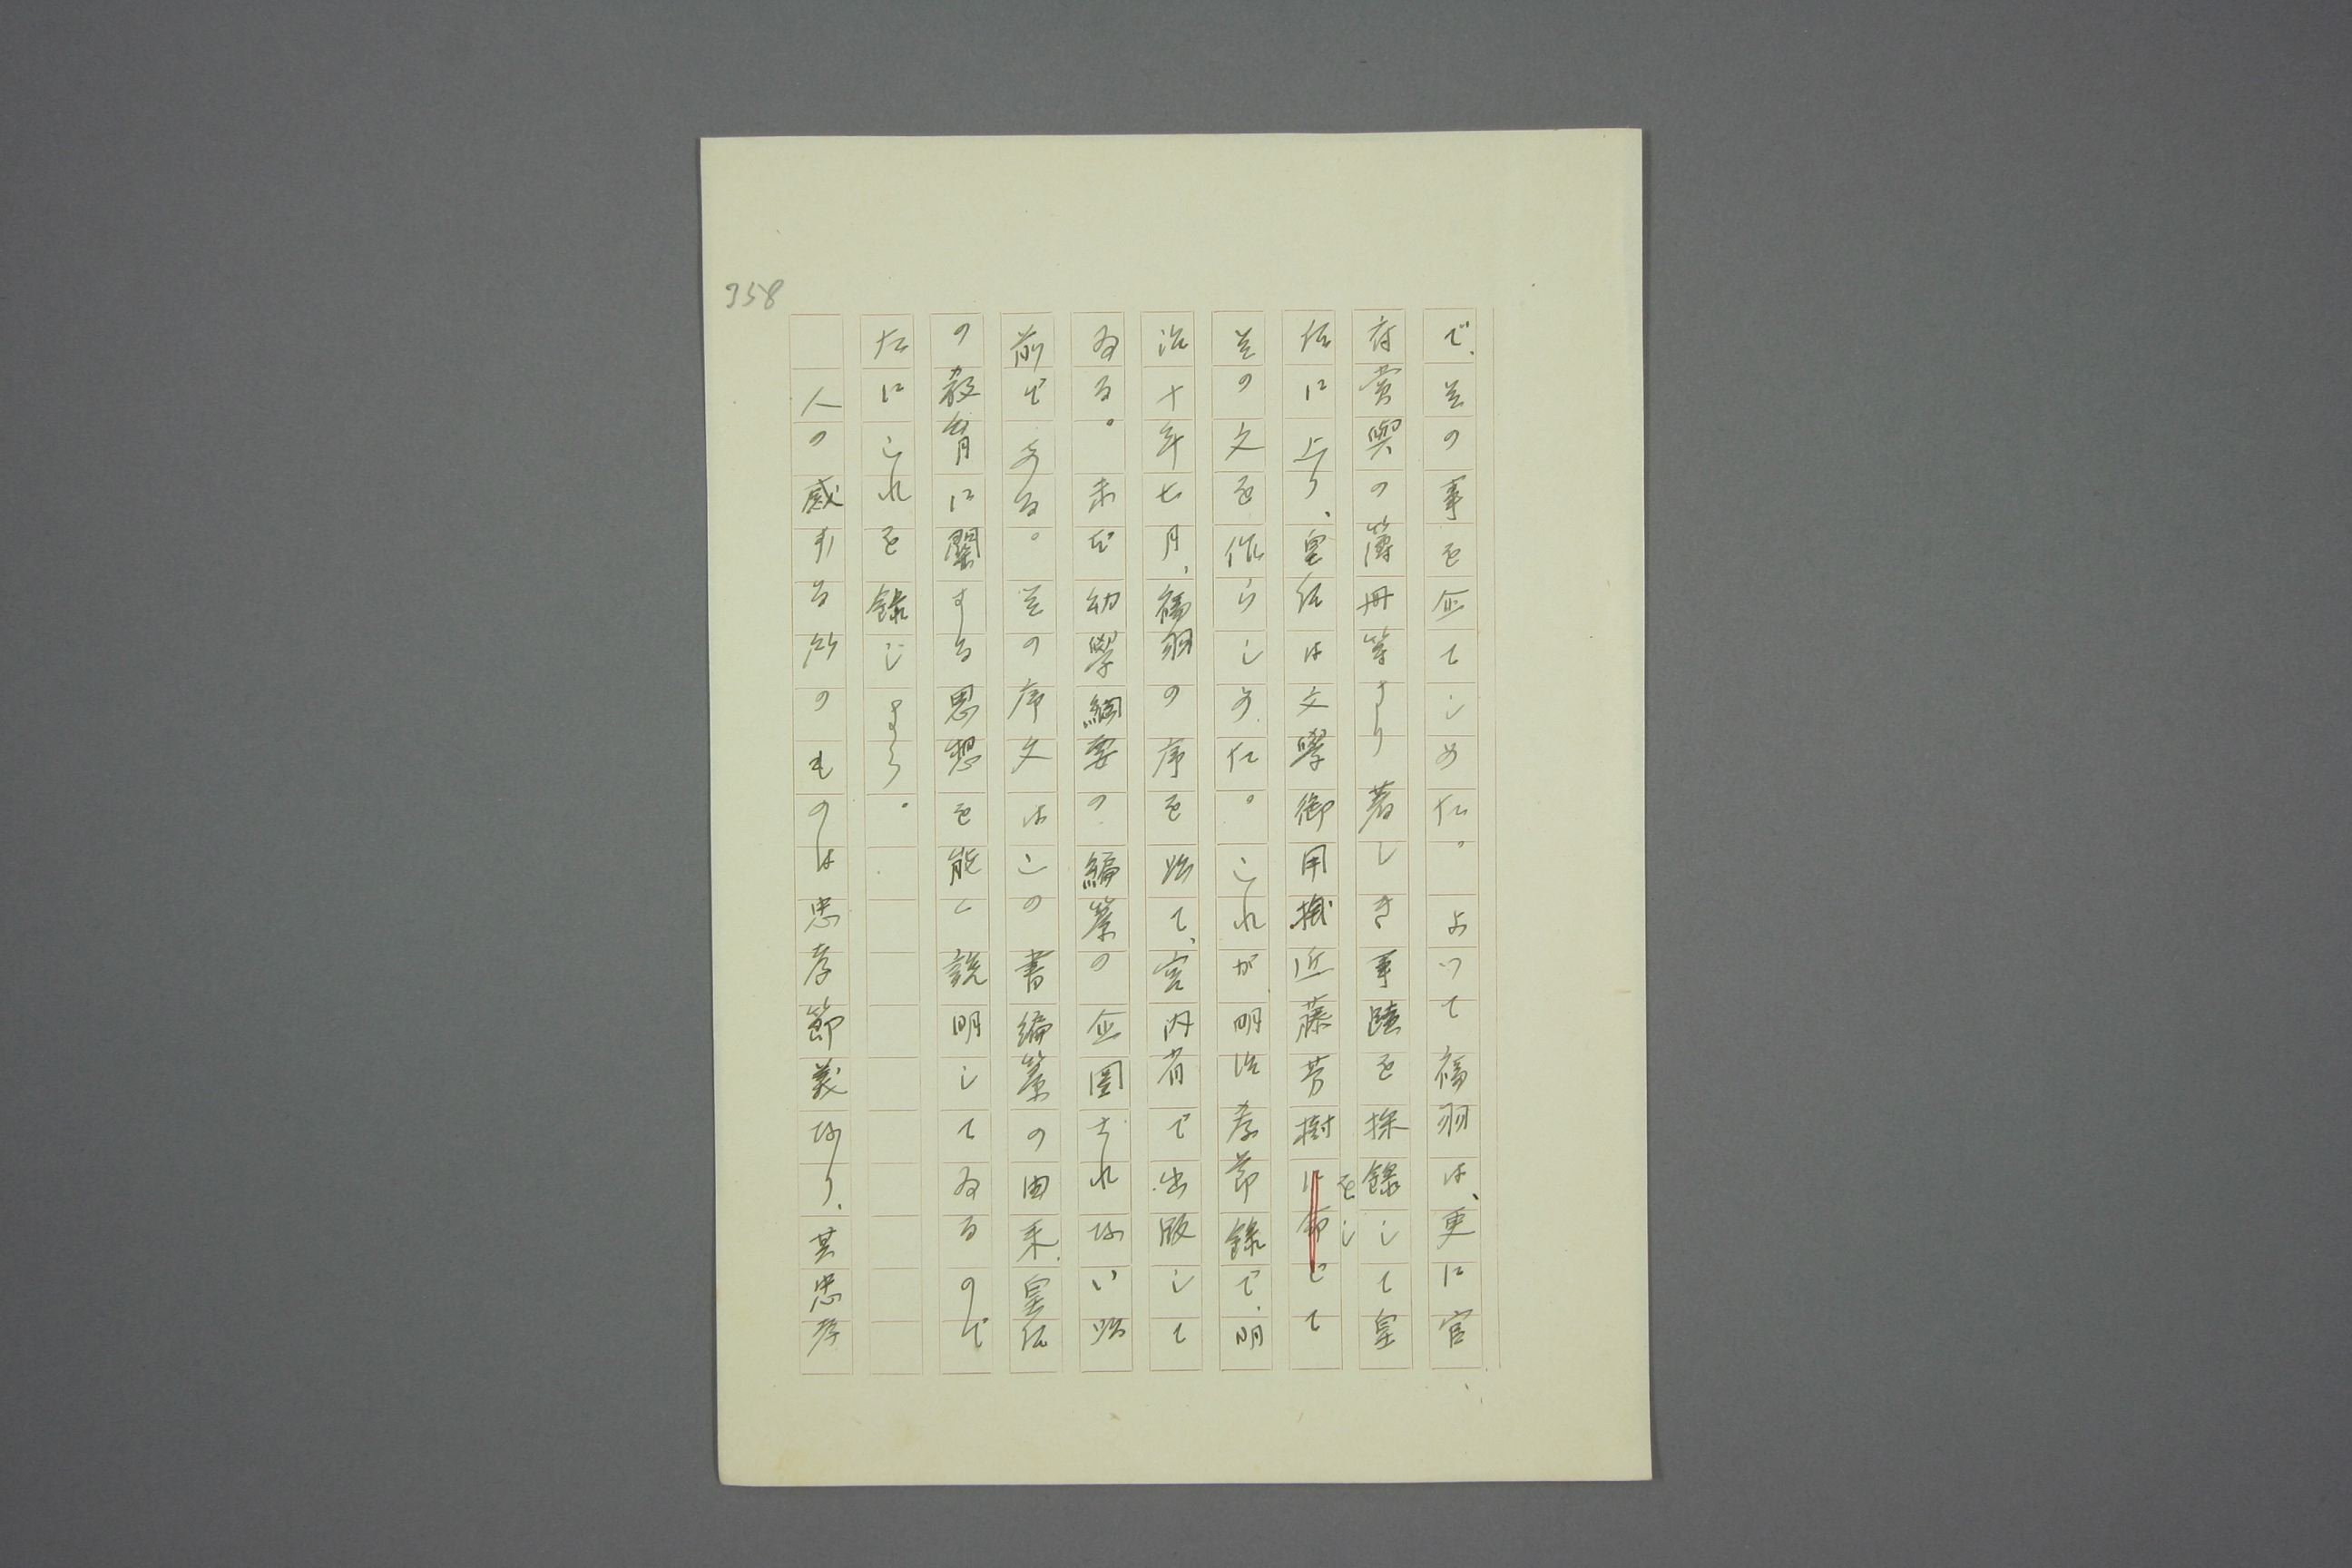 358
で、其の事を企てしめた。よつて福羽は、更に官
府賞與の薄册等より著しき事蹟を採錄して皇
后に上り、皇后は文學御用掛近藤芳樹をして
其の文を作らしめた。これが明治孝節錄で、明
治十年七月、福羽の序を始て、宮內省で出版して
ゐる。未だ幼學綱要の編纂の企圖されない以
前である。其の序文はこの書編纂の由來、皇后
の敎育に關する思想を能く說明してゐるので
左にこれを錄しよう。
人の感ずる所のものは忠孝節義なり、其忠孝